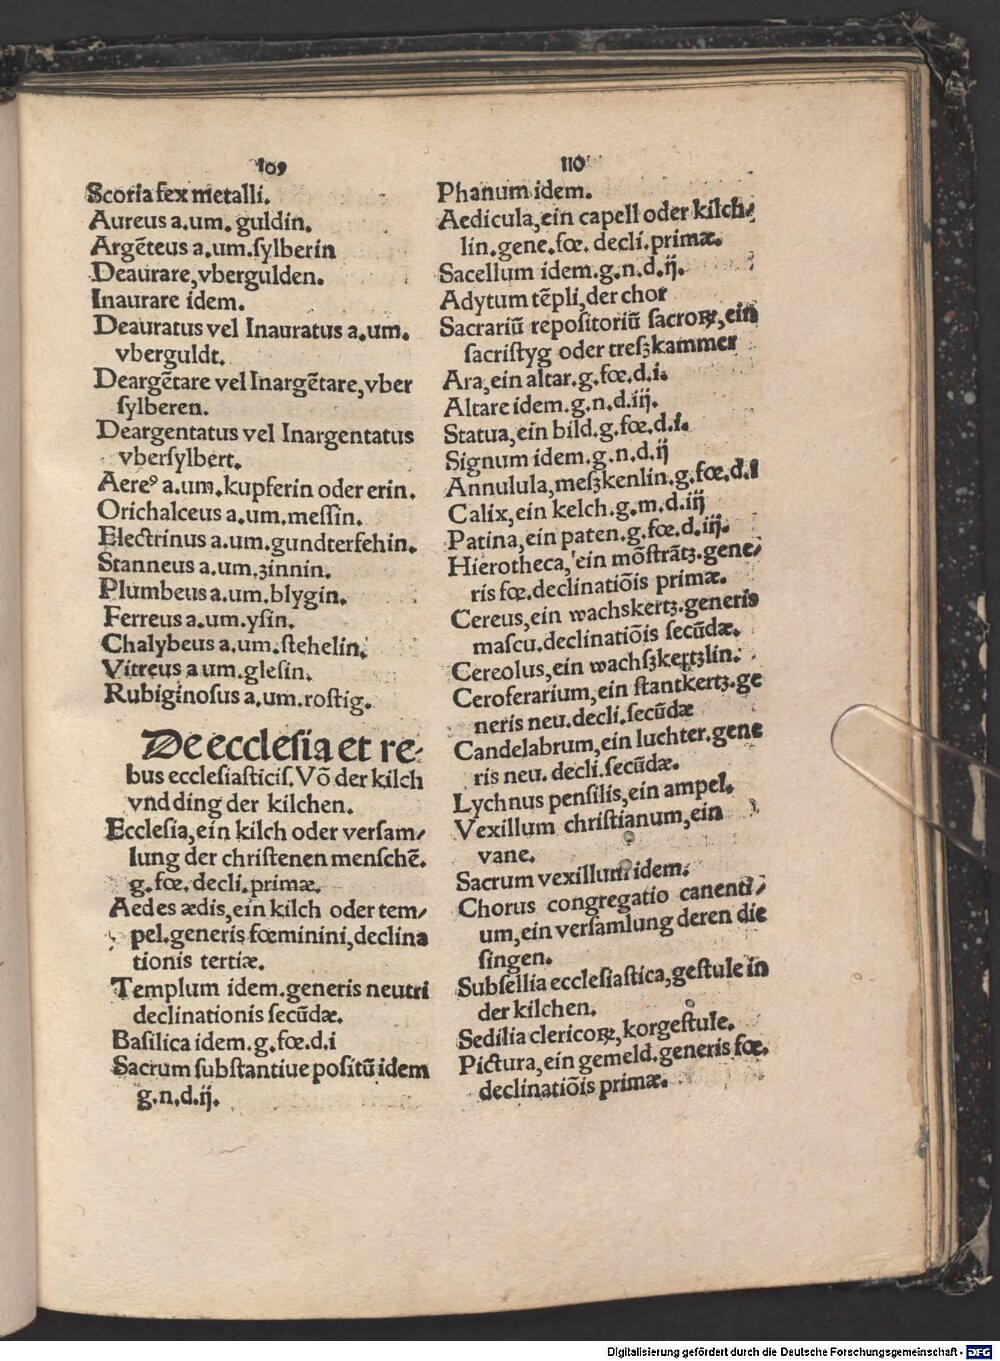 109
Scoria fex metalli.
Aureus a.um. guldin.
Argẽteus a.um.ſylberin
Deaurare,vbergulden.
Inaurare idem.
Deauratus vel Inauratus a.um.
vberguldt.
Deargẽtare vel Inargẽtare,vber
ſylberen.
Deargentatus vel Inargentatus
vberſylbert.
Aereꝰ a.um.kupferin oder erin.
Orichalceus a.um.meſſin.
Electrinus a.um.gundterfehin.
Stanneus a.um.zinnin.
Plumbeus a.um.blygin.
Ferreus a.um.yſin.
Chalybeus a.um.ſtehelin.
Vitreus a um.gleſin.
Rubiginoſus a.um.roſtig.
De eccleſia et re⸗
bus eccleſiaſticiſ.Võ der kilch
vnd ding der kilchen.
Eccleſia,ein kilch oder verſam/
lung der chriſtenen menſchẽ.
g.fœ.decli.primæ.
Aedes ædis,ein kilch oder tem/
pel.generis fœminini,declina
tionis tertiæ.
Templum idem.generis neutri
declinationis ſecũdæ.
Baſilica idem.g.fœ.d.i
Sacrum ſubſtantiue poſitũ idem
g.n.d.ij.
110
Phanum idem.
Aedicula,ein capell oder kilch⸗
lin.gene.fœ. decli.primæ.
Sacellum idem.g.n.d.ij.
Adytum tẽpli,der chor
Sacrariũ repoſitoriũ ſacroꝝ,ein
ſacriſtyg oder treſzkammer
Ara,ein altar.g.fœ.d.i.
Altare idem.g.n.d.iij.
Statua,ein bild.g.fœ.d.i.
Signum idem.g.n.d.ij
Annulula,meſzkenlin.g.fœ.d.i
Calix,ein kelch.g.m.d.iij
Patina,ein paten.g.fœ.d.iij.
Hierotheca,ein mõſtrãtz.gene/
ris fœ.declinatiõis primæ.
Cereus,ein wachskertz.generis
maſcu.declinatiõis ſecũdæ.
Cereolus,ein wachſzkertzlin.
Ceroferarium,ein ſtantkertz.ge
neris neu.decli.ſecũdæ
Candelabrum,ein luchter.gene
ris neu. decli.ſecũdæ.
Lychnus penſilis,ein ampel.
Vexillum chriſtianum,ein
vane.
Sacrum vexillum idem.
Chorus congregatio canenti/
um,ein verſamlung deren die
ſingen.
Subſellia eccleſiaſtica,geſtule in
der kilchen.
Sedilia clericoꝝ,korgeſtule.
Pictura,ein gemeld.generis fœ.
declinatiõis primæ.
Digitalisierung gefördert durch die Deutsche Forschungsgemeinschaft - DFG